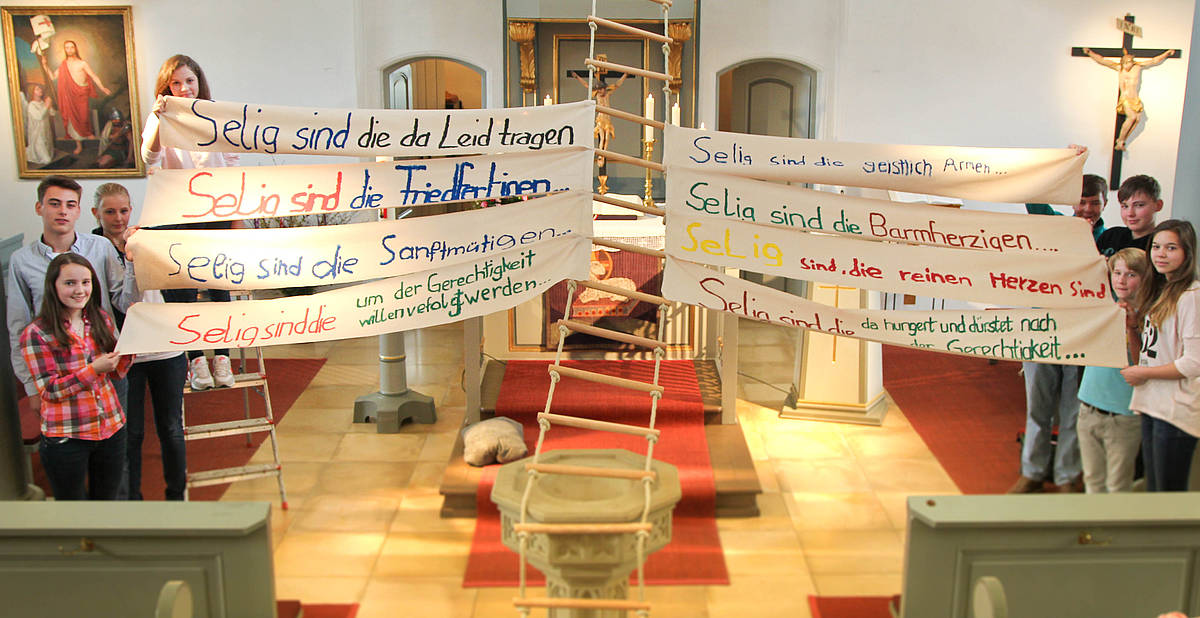 Selig sind die da Leid tragen
Selig sind die Friedfertinen...
Selig sind die Sanftmütigen...
Selig sind die um der Gerechtigkeit
willen vefolgt werden...
Selig sind die geistlich Armen...
Selig sind die Barmherzigen....
SeLig sind. die reinen Herzen Sind
Selig sind die da hungert und dürstet nach
der Gerechtigkeit...